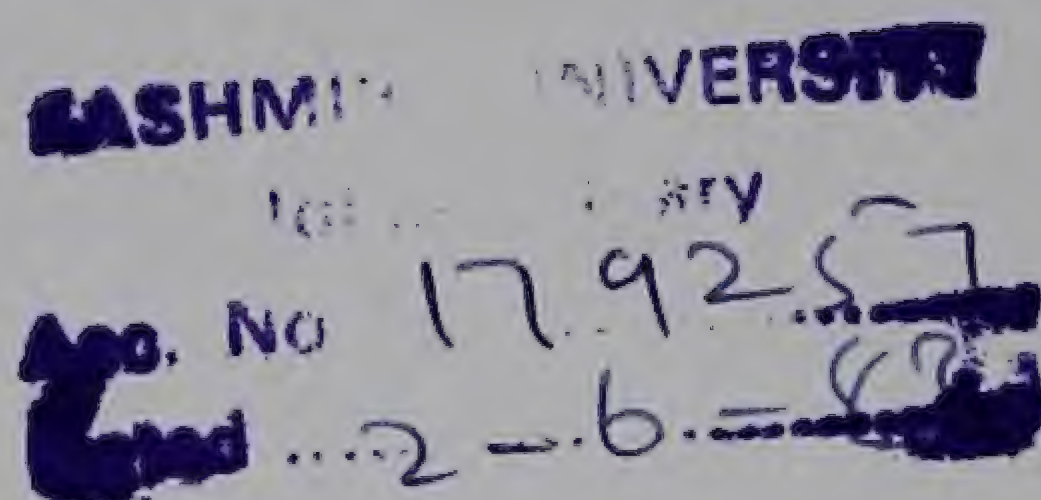 KASHMIR UNIVERSITY
Acc. No 179257
Dated ...2-.6.-